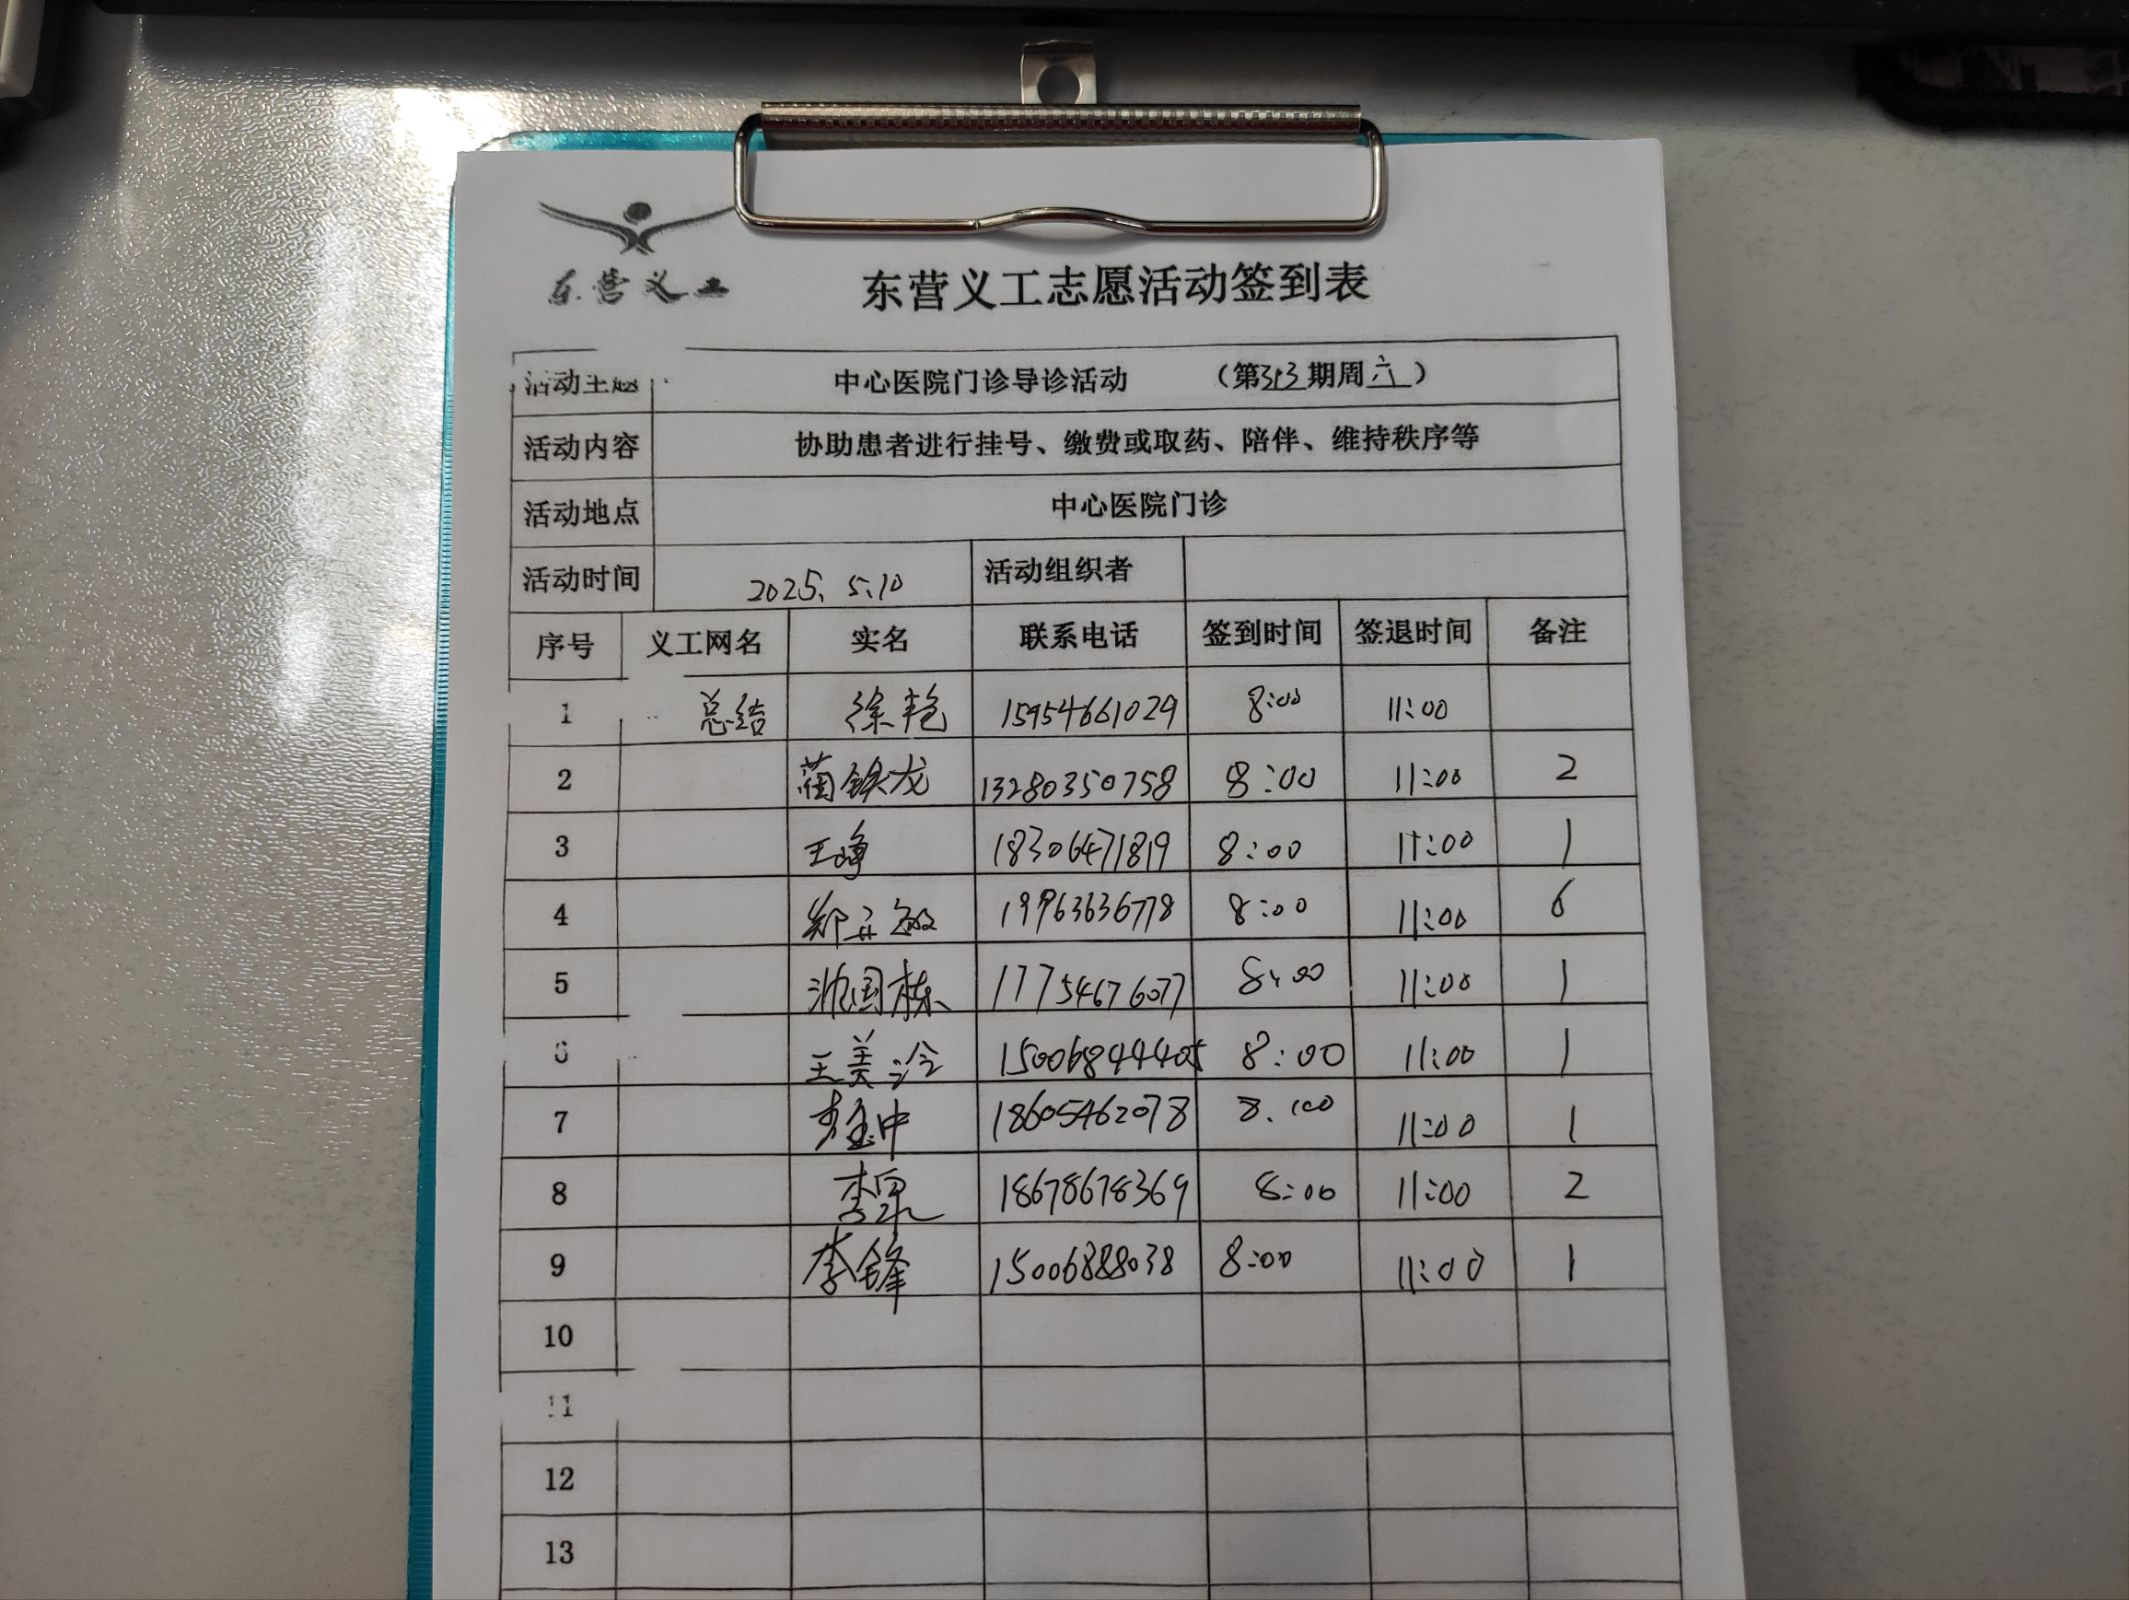 东营义工
东营义工志愿活动签到表
活动主题 中心医院门诊导诊活动 （第313期周六）
活动内容 协助患者进行挂号、缴费或取药、陪伴、维持秩序等
活动地点 中心医院门诊
活动时间 2025.5.10 活动组织者
序号 义工网名 实名 联系电话 签到时间 签退时间 备注
1 总结 徐艳 15954661029 8:00 11:00
2 蔺铁龙 13280350758 8:00 11:00 2
3 王峥 18306471819 8:00 11:00 1
4 郑立敏 19963636778 8:00 11:00 6
5 沈国栋 17754676077 8:00 11:00 1
6 王美泠 15006844405 8:00 11:00 1
7 18605462078 8:00 11:00 1
8 李杲 18678678369 8:00 11:00 2
9 李锋 15006888038 8:00 11:00 1
10
11
12
13